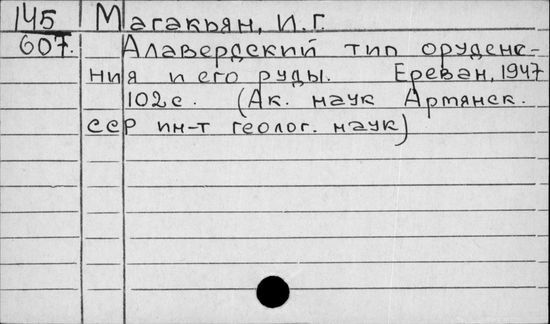 145 Магакьян, И.Г.
607. Алавердский тип оруdene-
ния и его руды. Ереван, 1947
102 с. (Ак. наук Армянск.
сср ин-т геолог. наук)